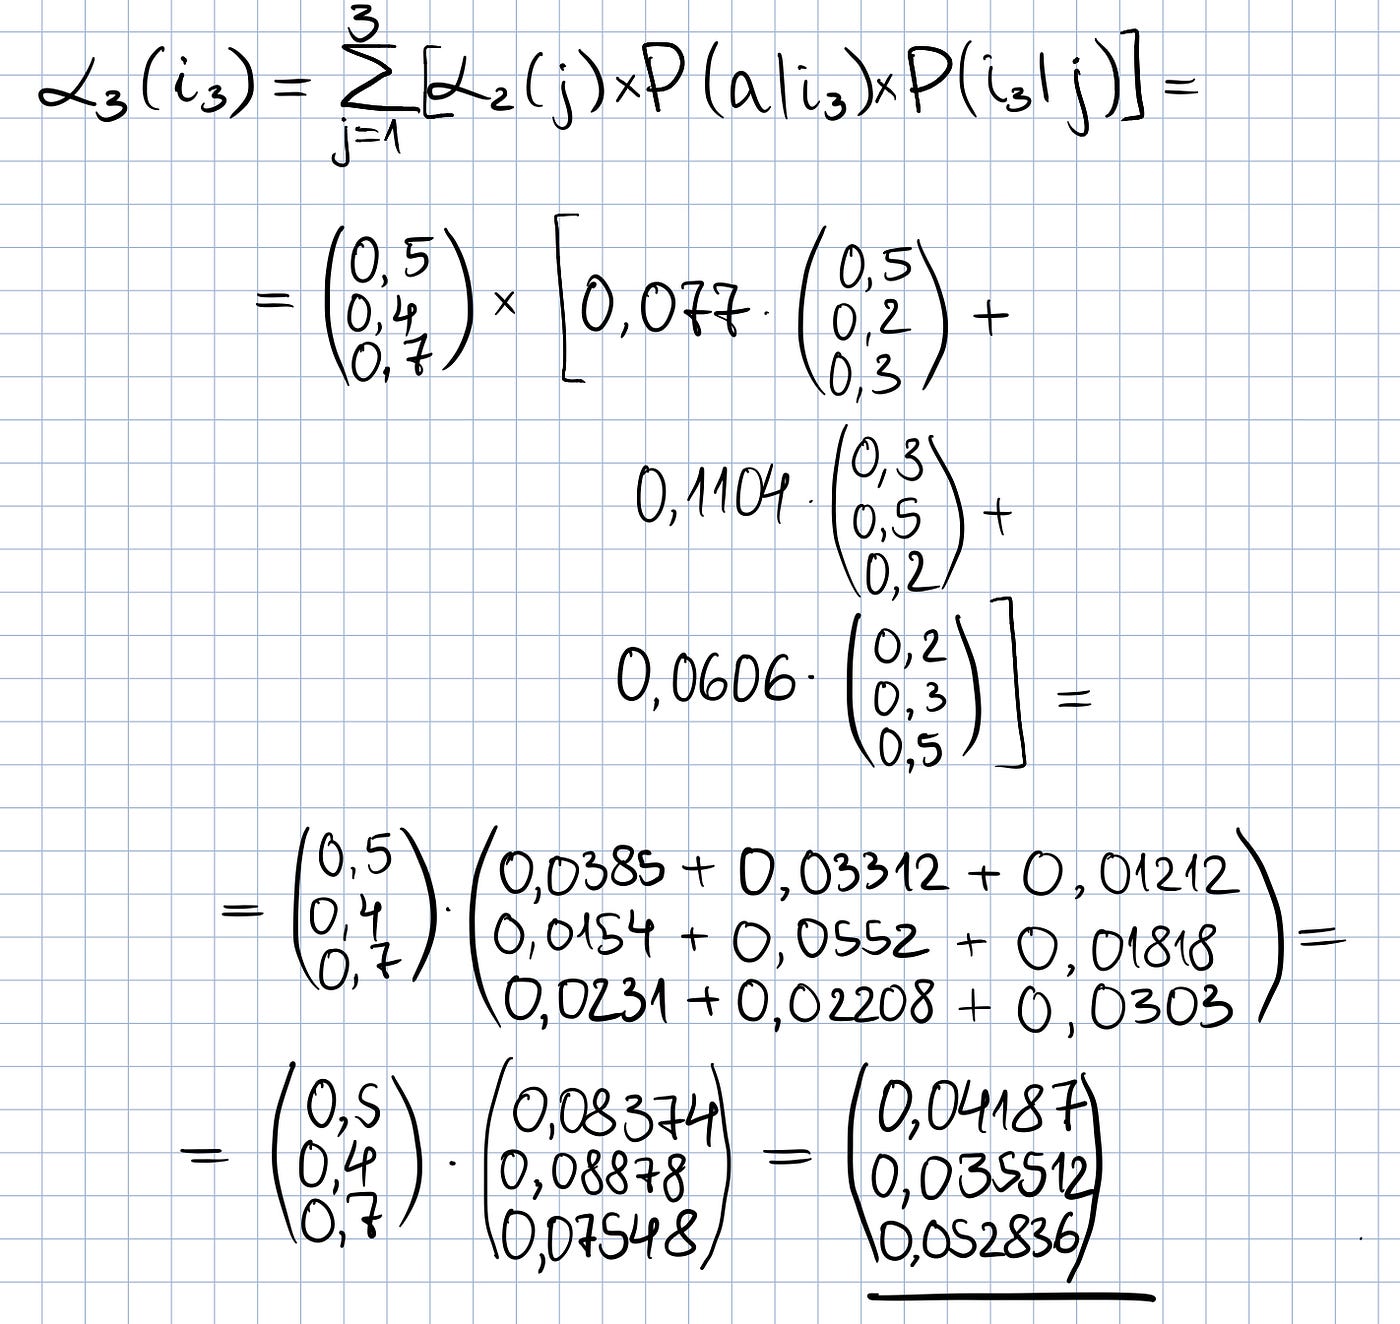 α₃(i₃) = ∑_{j=1}^{3} [α₂(j)×P(a|i₃)×P(i₃|j)] =
= (0,5 0,4 0,7) × [0,077 · (0,5 0,2 0,3) +
0,1104 · (0,3 0,5 0,2) +
0,0606 · (0,2 0,3 0,5)] =
= (0,5 0,4 0,7) · (0,0385 + 0,03312 + 0,01212
0,0154 + 0,0552 + 0,01818
0,0231 + 0,02208 + 0,0303) =
= (0,5 0,4 0,7) · (0,08374 0,08878 0,07548) = (0,04187 0,035512 0,052836)